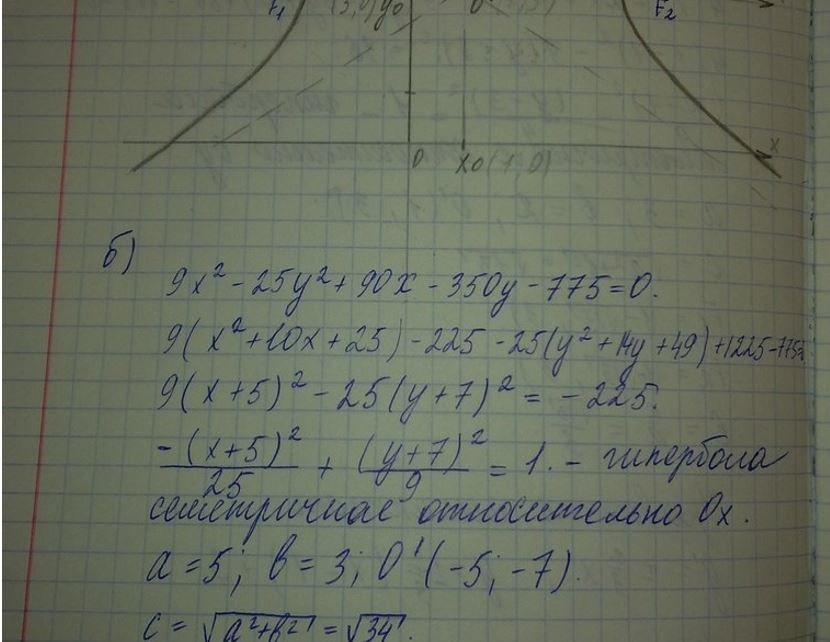 F₁ (3,0) y₀ 0' F₂
x
0 x₀(1,0)
б)
9x² - 25y² + 90x - 350y - 775 = 0.
9(x² + 10x + 25) - 225 - 25(y² + 14y + 49) + 1225 - 775 =
9(x + 5)² - 25(y + 7)² = - 225.
-(x+5)²/25 + (y+7)²/9 = 1. - гипербола
семетричная относительно Ox.
a = 5; b = 3; 0'(-5; -7).
c = √a²+b² = √34.